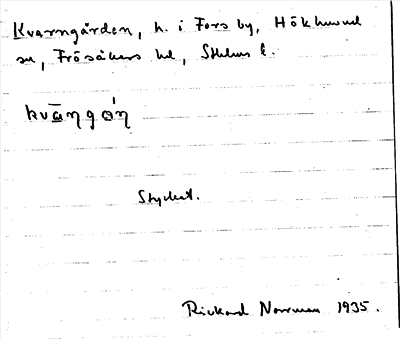 Kvarngården, h. i Fors by, Hökhuvud
sn, Frösåkers hd, Sthlms l.
kvāŋg̱ó̱ŋ
Styckat.
Rickard Norrman 1935.